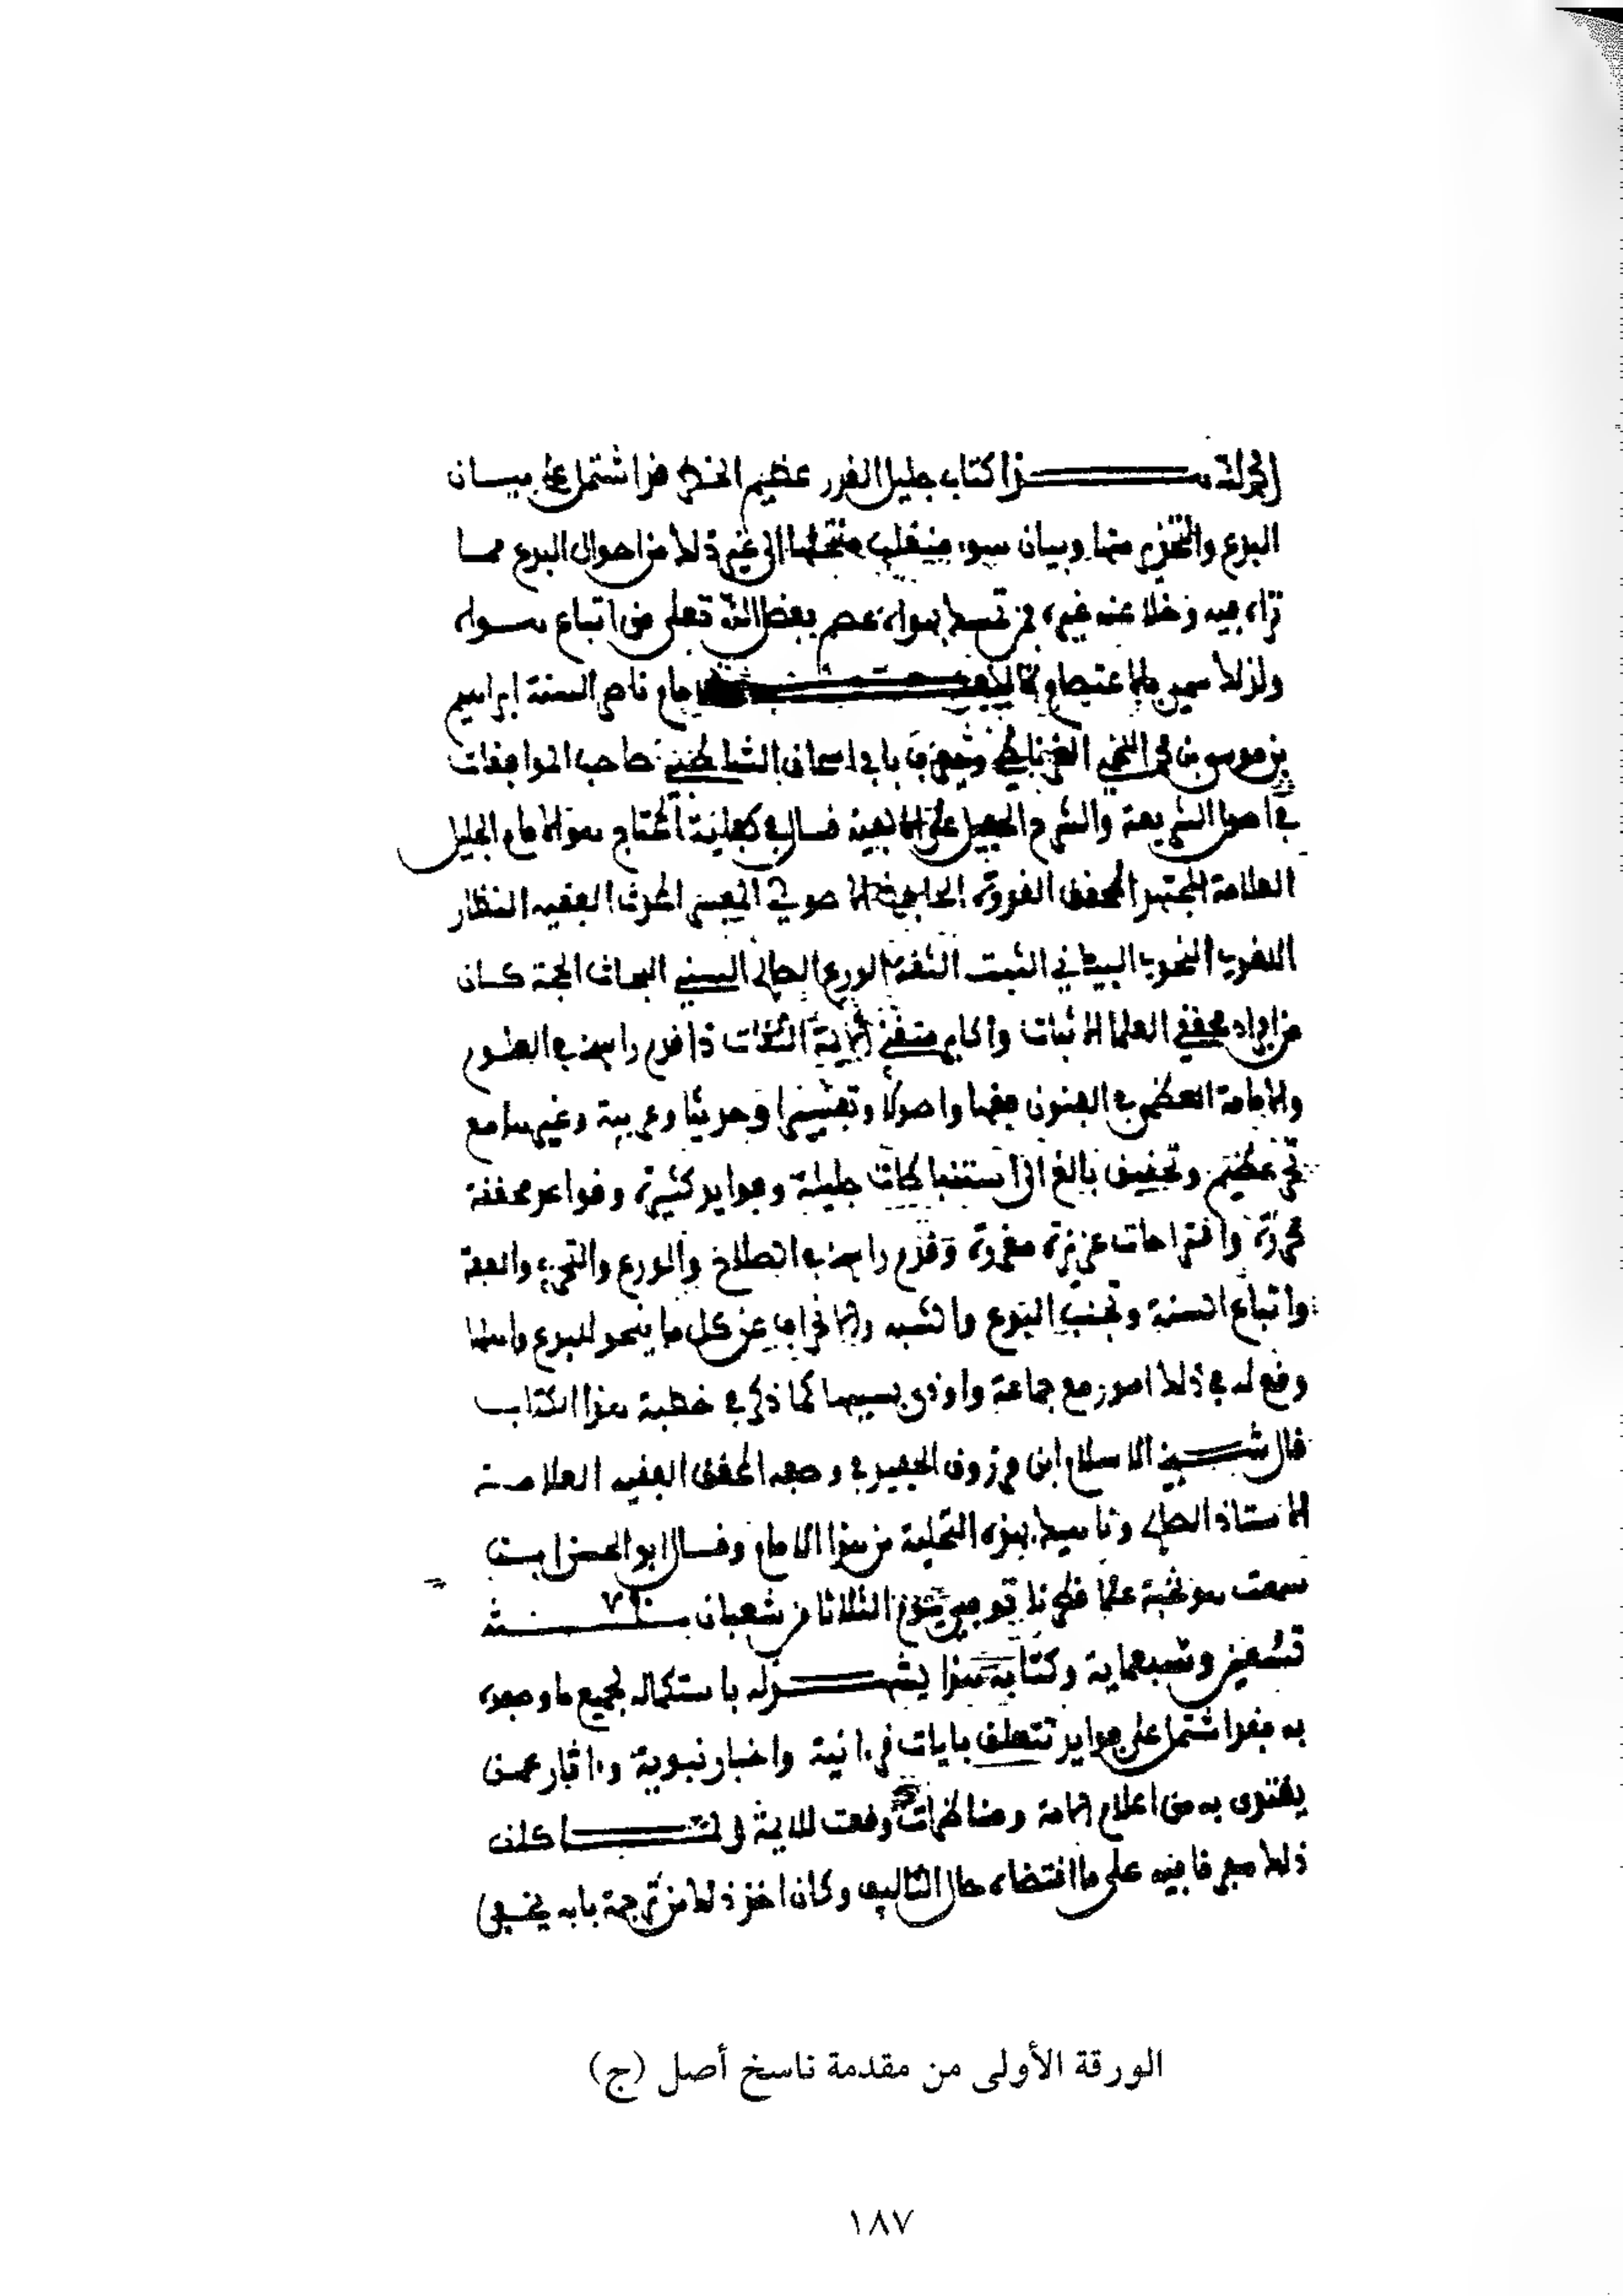 الحمد لله هذا كتاب جليل القدر عظيم الخطر قد اشتمل على بيان
البدع والتحذير منها وبيان سوء منقلب منتحلها الى غير ذلك من احوال البدع مما
تراه فيه وخلا عنه غيره فمن تمسك بهواه عصم بفضل الله تعلى من اتباع هواه
ولذلك سمي بالاعتصام للامام ناصر السنة ابراهيم
بن موسى بن محمد اللخمي الغرناطي بابي اسحاق الشاطبي صاحب الموافقات
في اصول الشريعة والشرح الجليل على الالفية قال في كفاية المحتاج هو الامام الجليل
العلامة المجتهد المحقق القدوة الحافظ الاصولي المفسر المحدث الفقيه النظار
اللغوي النحوي البياني الثبت الثقة الورع الصالح السني البحاث الحجة كان
من افراد محققي العلما الاثبات واكابر متفنني الايمة الثقات ذا قدم راسخ في العلوم
والامامة العظمى في الفنون فقها واصولا وتفسيرا وحديثا وعربية وغيرها مع
تحر عظيم وتحقيق بالغ الى استنباطات جليلة وفوايد كثيرة وقواعد محققة
محررة واقتراحات عزيزة مقررة وقدم راسخ في الصلاح والورع والتحري والعفة
واتباع السنة وتجنب البدع والشبه والانحراف عن كل ما ينحو للبدع واهلها
وقع له في ذلك امور مع جماعة واوذي بسببها كما ذكر في خطبة هذا الكتاب
قال شيخ الاسلام ابن مرزوق الحفيد في وصفه المحقق الفقيه العلامة
الاستاذ الصالح وناهيك بهذه التحلية من هذا الامام وقال ابو الحسن ابن
سمعت هو نخبة علما قطرنا توفي يوم الثلاثا من شعبان سنة
تسعين وسبعماية وكتابه هذا يشهد له باستكماله لجميع ما وصفوه
به فقد اشتمل على فوايد تتعلق بايات قرءانية واخبار نبوية وءاثار عمن
يقتدى به من اعلام الامة ومناظرات وقعت للايمة ولما كان
ذلك مفرقا فيه على ما اقتضاه حال التاليف وكان اخذ ذلك من ترجمة بابه يخفى
الورقة الأولى من مقدمة ناسخ أصل (ج)
١٨٧